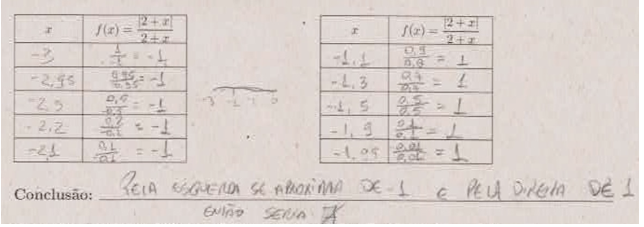 x f(x) = |2 + x| / 2 + x
-3 1/-1 = -1
-2,95 0,95/-0,95 = -1
-2,5 0,5/-0,5 = -1
-2,2 0,2/-0,2 = -1
-2,1 0,1/-0,1 = -1
x f(x) = |2 + x| / 2 + x
-1,1 0,9/0,9 = 1
-1,3 0,7/0,7 = 1
-1,5 0,5/0,5 = 1
-1,9 0,1/0,1 = 1
-1,99 0,01/0,01 = 1
Conclusão: PELA ESQUERDA SE APROXIMA DE -1 E PELA DIREITA DE 1
ENTÃO SERIA ∄